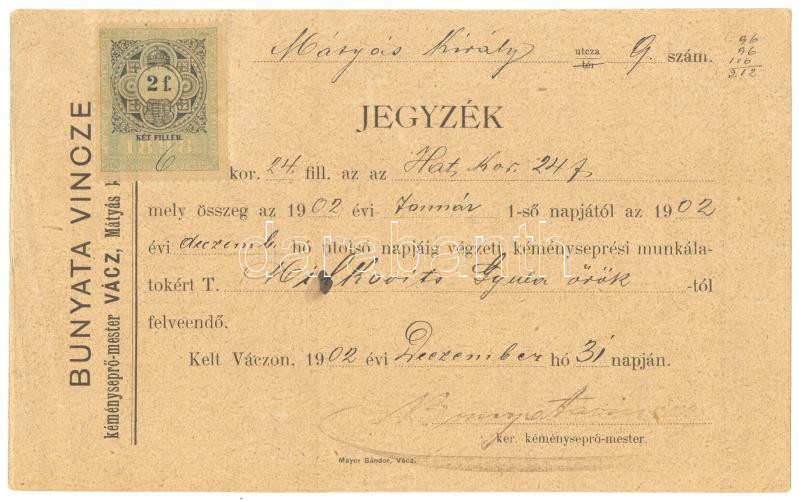 Mátyás Király utcza tér 9. szám.
96
96
120
3.12
2 f.
KÉT FILLÉR.
1898
JEGYZÉK
BUNYATA VINCZE
kéményseprő-mester VÁCZ, Mátyás
6 kor. 24 fill. az az Hat Kor. 24 f
mely összeg az 1902 évi Január 1-ső napjától az 1902
évi deczemb. hó utolsó napjáig végzett kéményseprési munkála-
tokért T. Miskovits Gyula örök -től
felveendő.
Kelt Váczon, 1902 évi Deczember hó 31 napján.
ker. kéményseprő-mester.
Mayer Sándor, Vácz.
darabanth